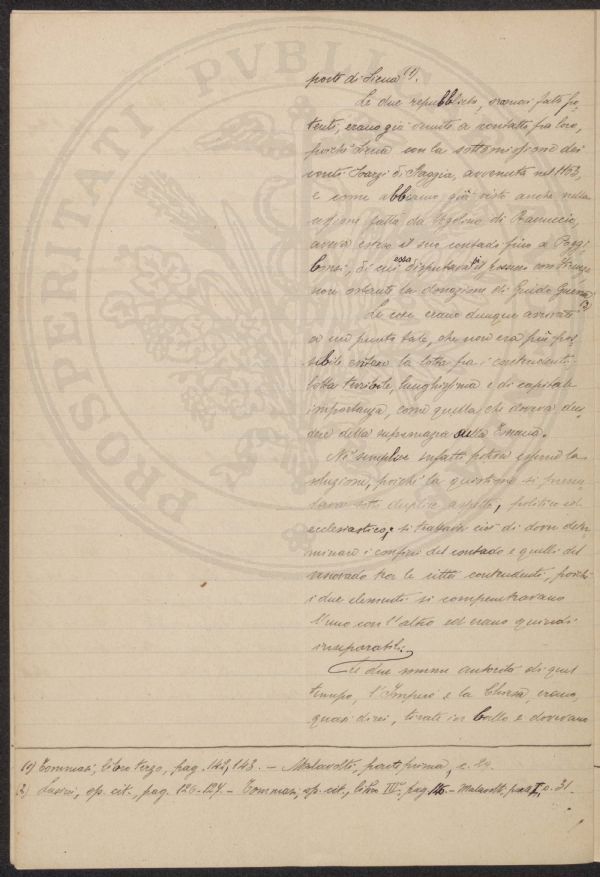 porte di Siena (1).
Le due repubbliche, oramai fatte po-
tenti, erano già venute a contatto fra loro,
poiché Siena con la sottomissione dei
conti Soarzi di Staggia, avvenuta nel 1163,
e come abbiamo già visto anche nella
cessione fatta da Ugolino di Ranuccio,
aveva esteso il suo contado fino a Poggi
bonsi, di cui essa disputava il possesso con Firenze
non ostante la donazione di Guido Guerra (2)
Le cose erano dunque arrivate
a un punto tale, che non era più pos-
sibile evitare la lotta fra i contendenti:
lotta terribile, lunghissima e di capitale
importanza, come quella, che doveva deci
dere della supremazia nella Toscana.
Né semplice infatti poteva esserne la
soluzione, poiché la questione si presen
tava sotto duplice aspetto, politico ed
ecclesiastico; si trattava cioè di dover deter
minare i confini del contado e quelli del
vescovado tra le città contendenti, poiché
i due elementi si compenetravano
l'uno con l'altro ed erano quindi
inseparabili.
Le due somme autorità di quel
tempo, l'Impero e la Chiesa, erano,
quasi direi, tirati in ballo e dovevano
(1) Tommasi, libro terzo, pag. 142, 143. — Malavolti, parte prima, c. 29.
2) op. cit., pag. 126-127. — Tommasi, op. cit., libro III, pag. — Malavolti, parte I, c. 31.
PROSPERITATI PVBLIC